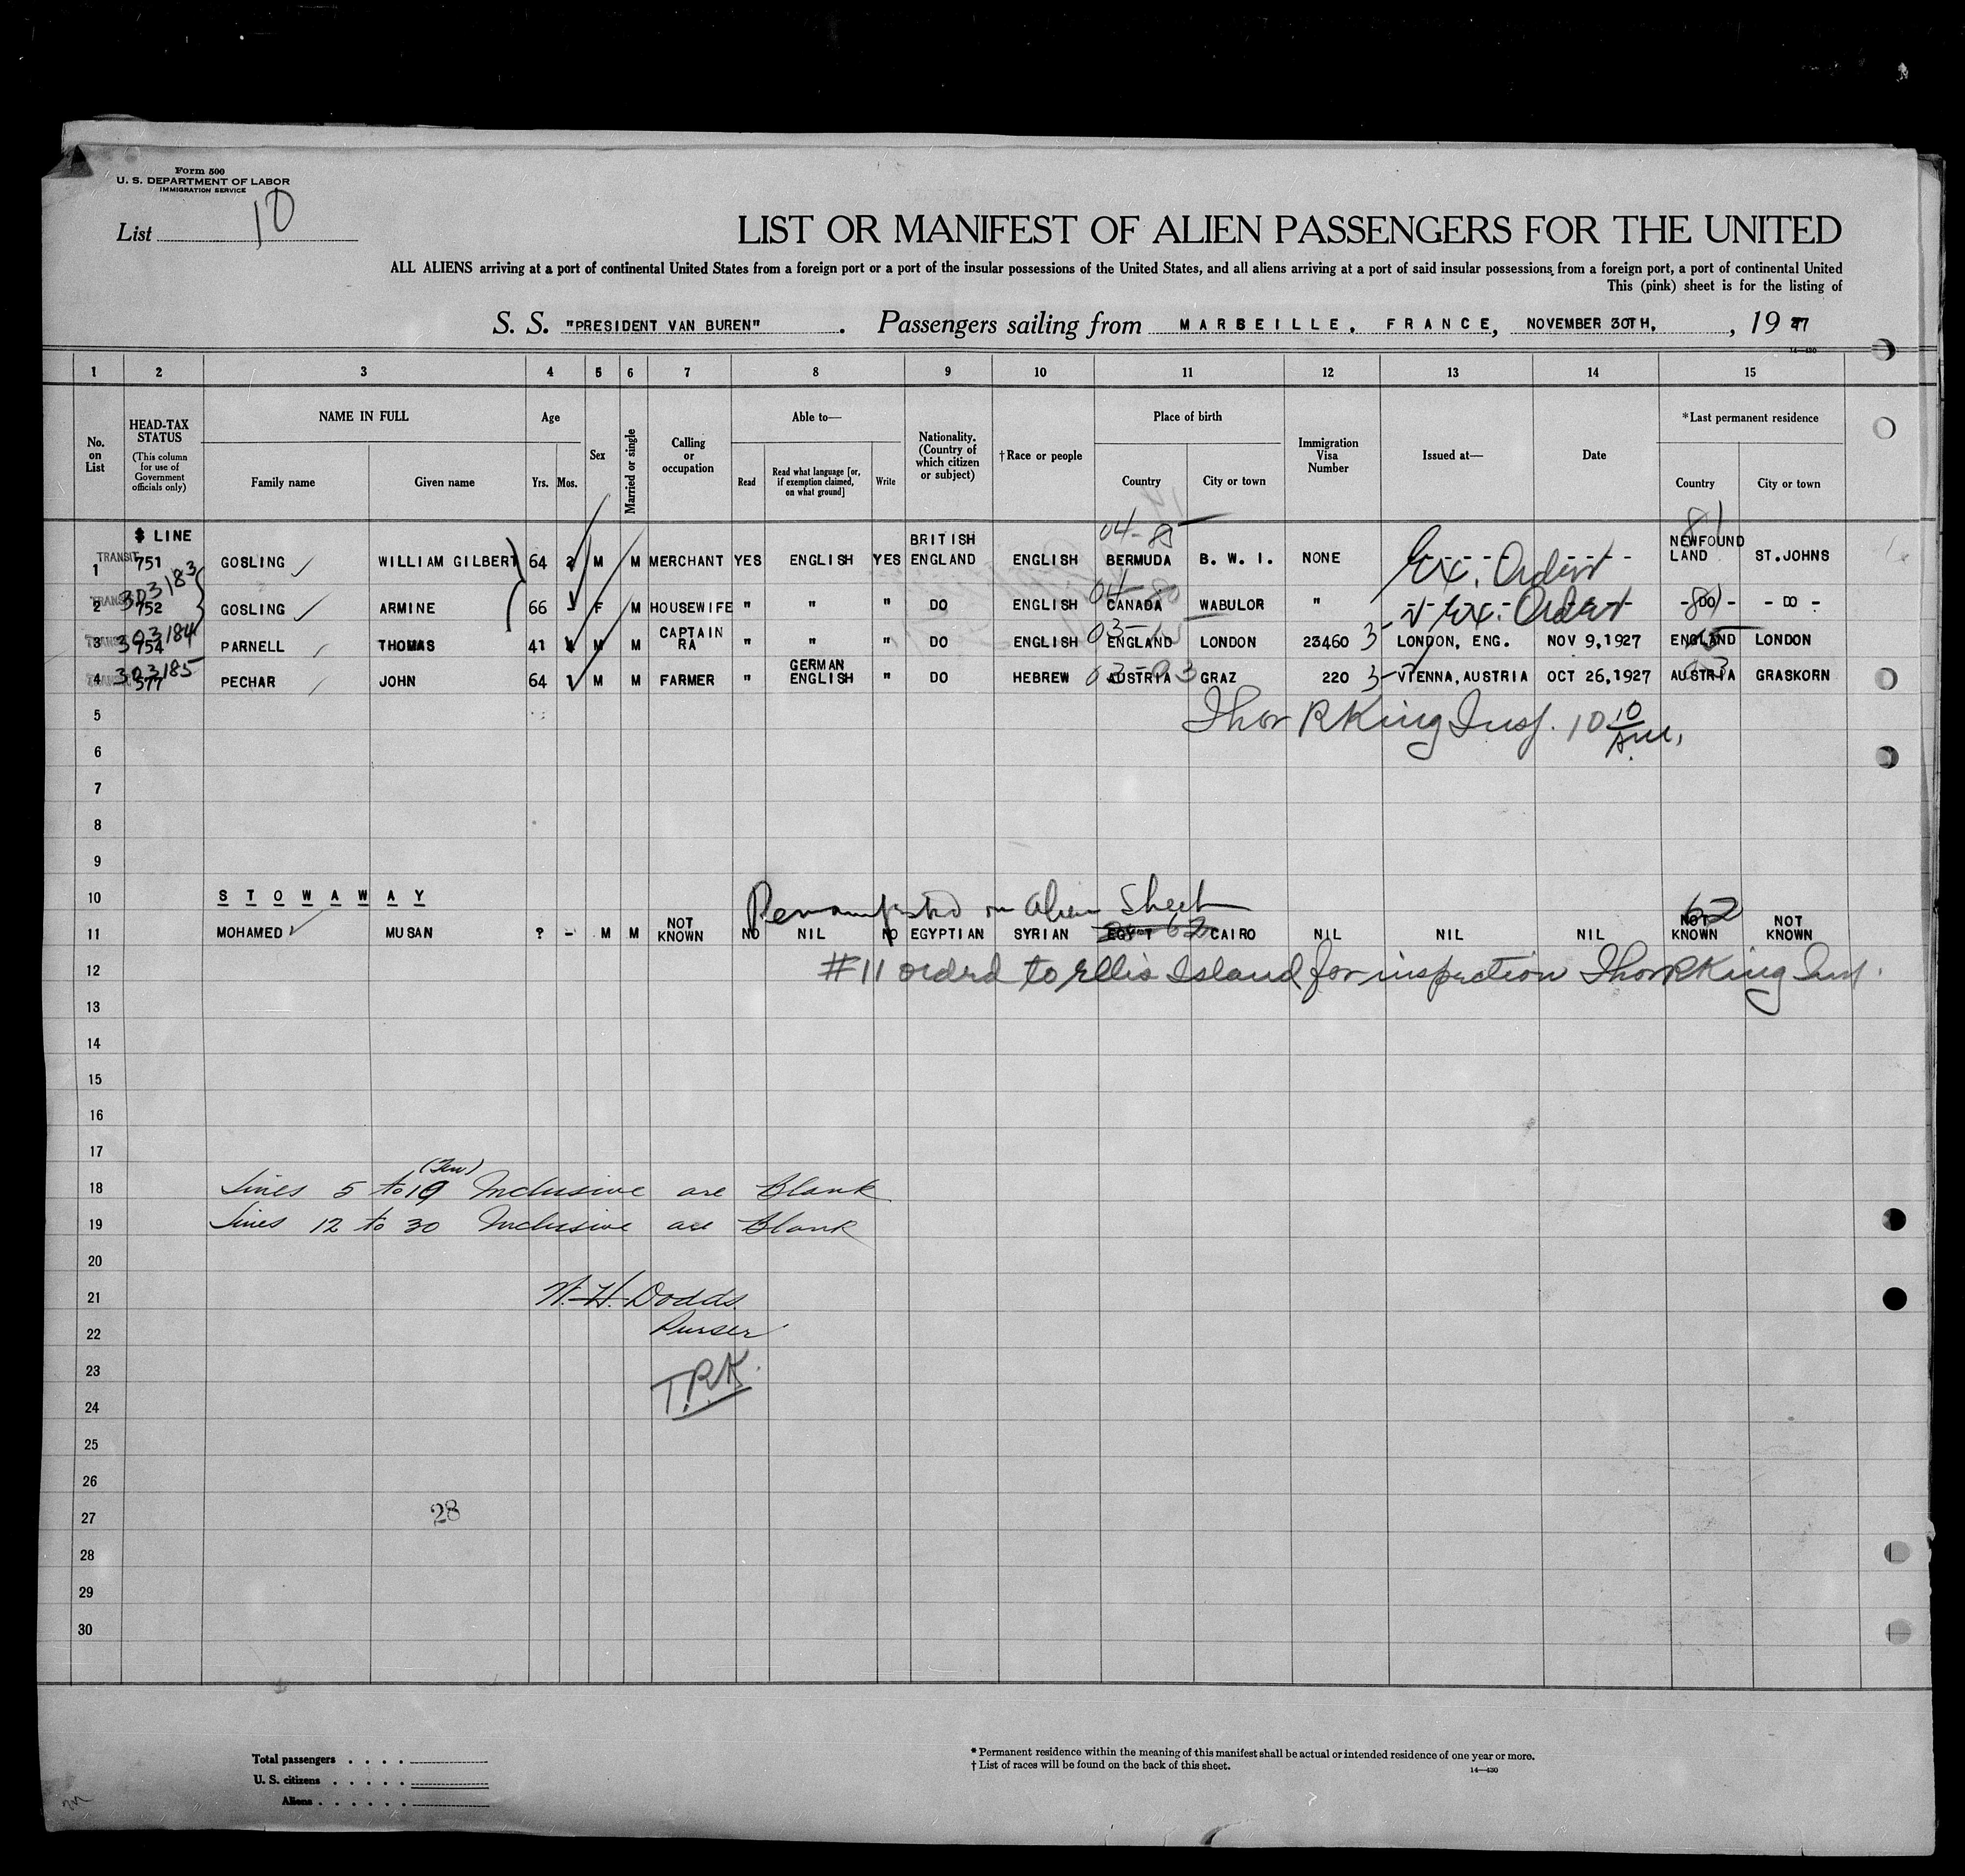 Form 500
U. S. DEPARTMENT OF LABOR
IMMIGRATION SERVICE
List 10
LIST OR MANIFEST OF ALIEN PASSENGERS FOR THE UNITED
ALL ALIENS arriving at a port of continental United States from a foreign port or a port of the insular possessions of the United States, and all aliens arriving at a port of said insular possessions, from a foreign port, a port of continental United
This (pink) sheet is for the listing of
S. S. "PRESIDENT VAN BUREN". Passengers sailing from MARSEILLE. FRANCE, NOVEMBER 30TH, , 19 27
14—430
1 2 3 4 5 6 7 8 9 10 11 12 13 14 15
No. on List
HEAD-TAX STATUS (This column for use of Government officials only)
NAME IN FULL
Family name Given name
Age
Yrs. Mos.
Sex
Married or single
Calling or occupation
Able to—
Read
Read what language [or, if exemption claimed, on what ground]
Write
Nationality. (Country of which citizen or subject)
†Race or people
Place of birth
Country City or town
Immigration Visa Number
Issued at—
Date
*Last permanent residence
Country City or town
$ LINE
TRANSIT 1 751 GOSLING WILLIAM GILBERT 64 2 M M MERCHANT YES ENGLISH YES BRITISH ENGLAND ENGLISH 04-85 BERMUDA B. W. I. NONE Ex. 81 NEWFOUND LAND ST.JOHNS
303183
2 752 GOSLING ARMINE 66 - F M HOUSEWIFE " " " DO ENGLISH 04-80 CANADA WABULOR " Ex. 81 - DO - - DO -
303184
3 754 PARNELL THOMAS 41 M M CAPTAIN RA " " " DO ENGLISH 03- ENGLAND LONDON 23460 3- LONDON, ENG. NOV 9,1927 ENGLAND LONDON
303185
4 577 PECHAR JOHN 64 1 M M FARMER " GERMAN ENGLISH " DO HEBREW 03-03 AUSTRIA GRAZ 220 3- VIENNA,AUSTRIA OCT 26,1927 AUSTRIA GRASKORN
5 Thor R King Insp. 10 10 A.M.
6
7
8
9
10 STOWAWAY Remanifested on Alien Sheet
11 MOHAMED MUSAN ? - M M NOT KNOWN NO NIL NO EGYPTIAN SYRIAN EGYPT 62 CAIRO NIL NIL NIL 62 NOT KNOWN NOT KNOWN
12 #11 ordrd to Ellis Island for inspection Thor R King Insp.
13
14
15
16
17
18 Lines 5 to 10 (Ten) Inclusive are Blank
19 Lines 12 to 30 Inclusive are Blank
20
21 W. H. Dodds.
22 Purser
23 T.R.K.
24
25
26
27 28
28
29
30
Total passengers . . . .
U. S. citizens . . . . .
Aliens . . . . . .
* Permanent residence within the meaning of this manifest shall be actual or intended residence of one year or more.
† List of races will be found on the back of this sheet.
14—430